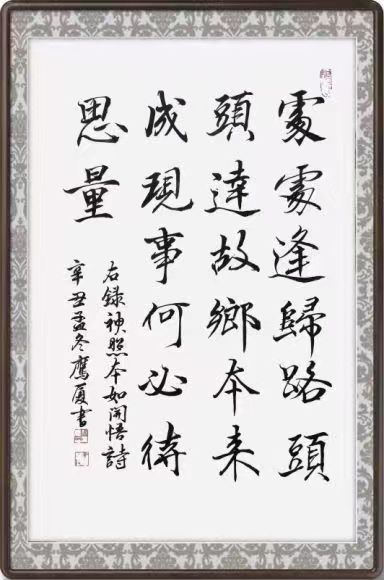 處處逢歸路頭
頭達故鄉本来
成現事何必待
思量
右錄神照本如開悟詩
辛丑孟冬鷹厦書